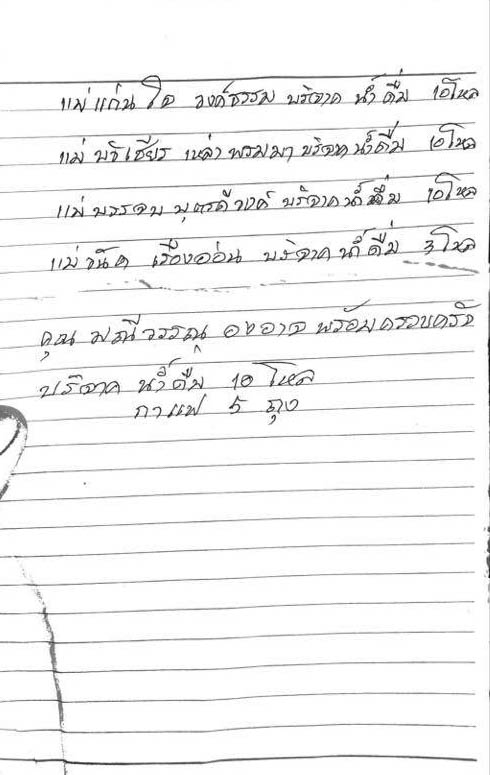 แม่แก่นใจ วงค์ธรรม บริจาค น้ำดื่ม 10โหล
แม่ บริเชียร เหล่าพรมมา บริจาค น้ำดื่ม 10โหล
แม่บรรจบ บุตรดีวงค์ บริจาค น้ำดื่ม 10โหล
แม่ เรืองอ่อน บริจาค น้ำดื่ม 3โหล
คุณ มณีวรรณ องอาจ พร้อมครอบครัว
บริจาค น้ำดื่ม 10 โหล
กาแฟ 5 ถุง